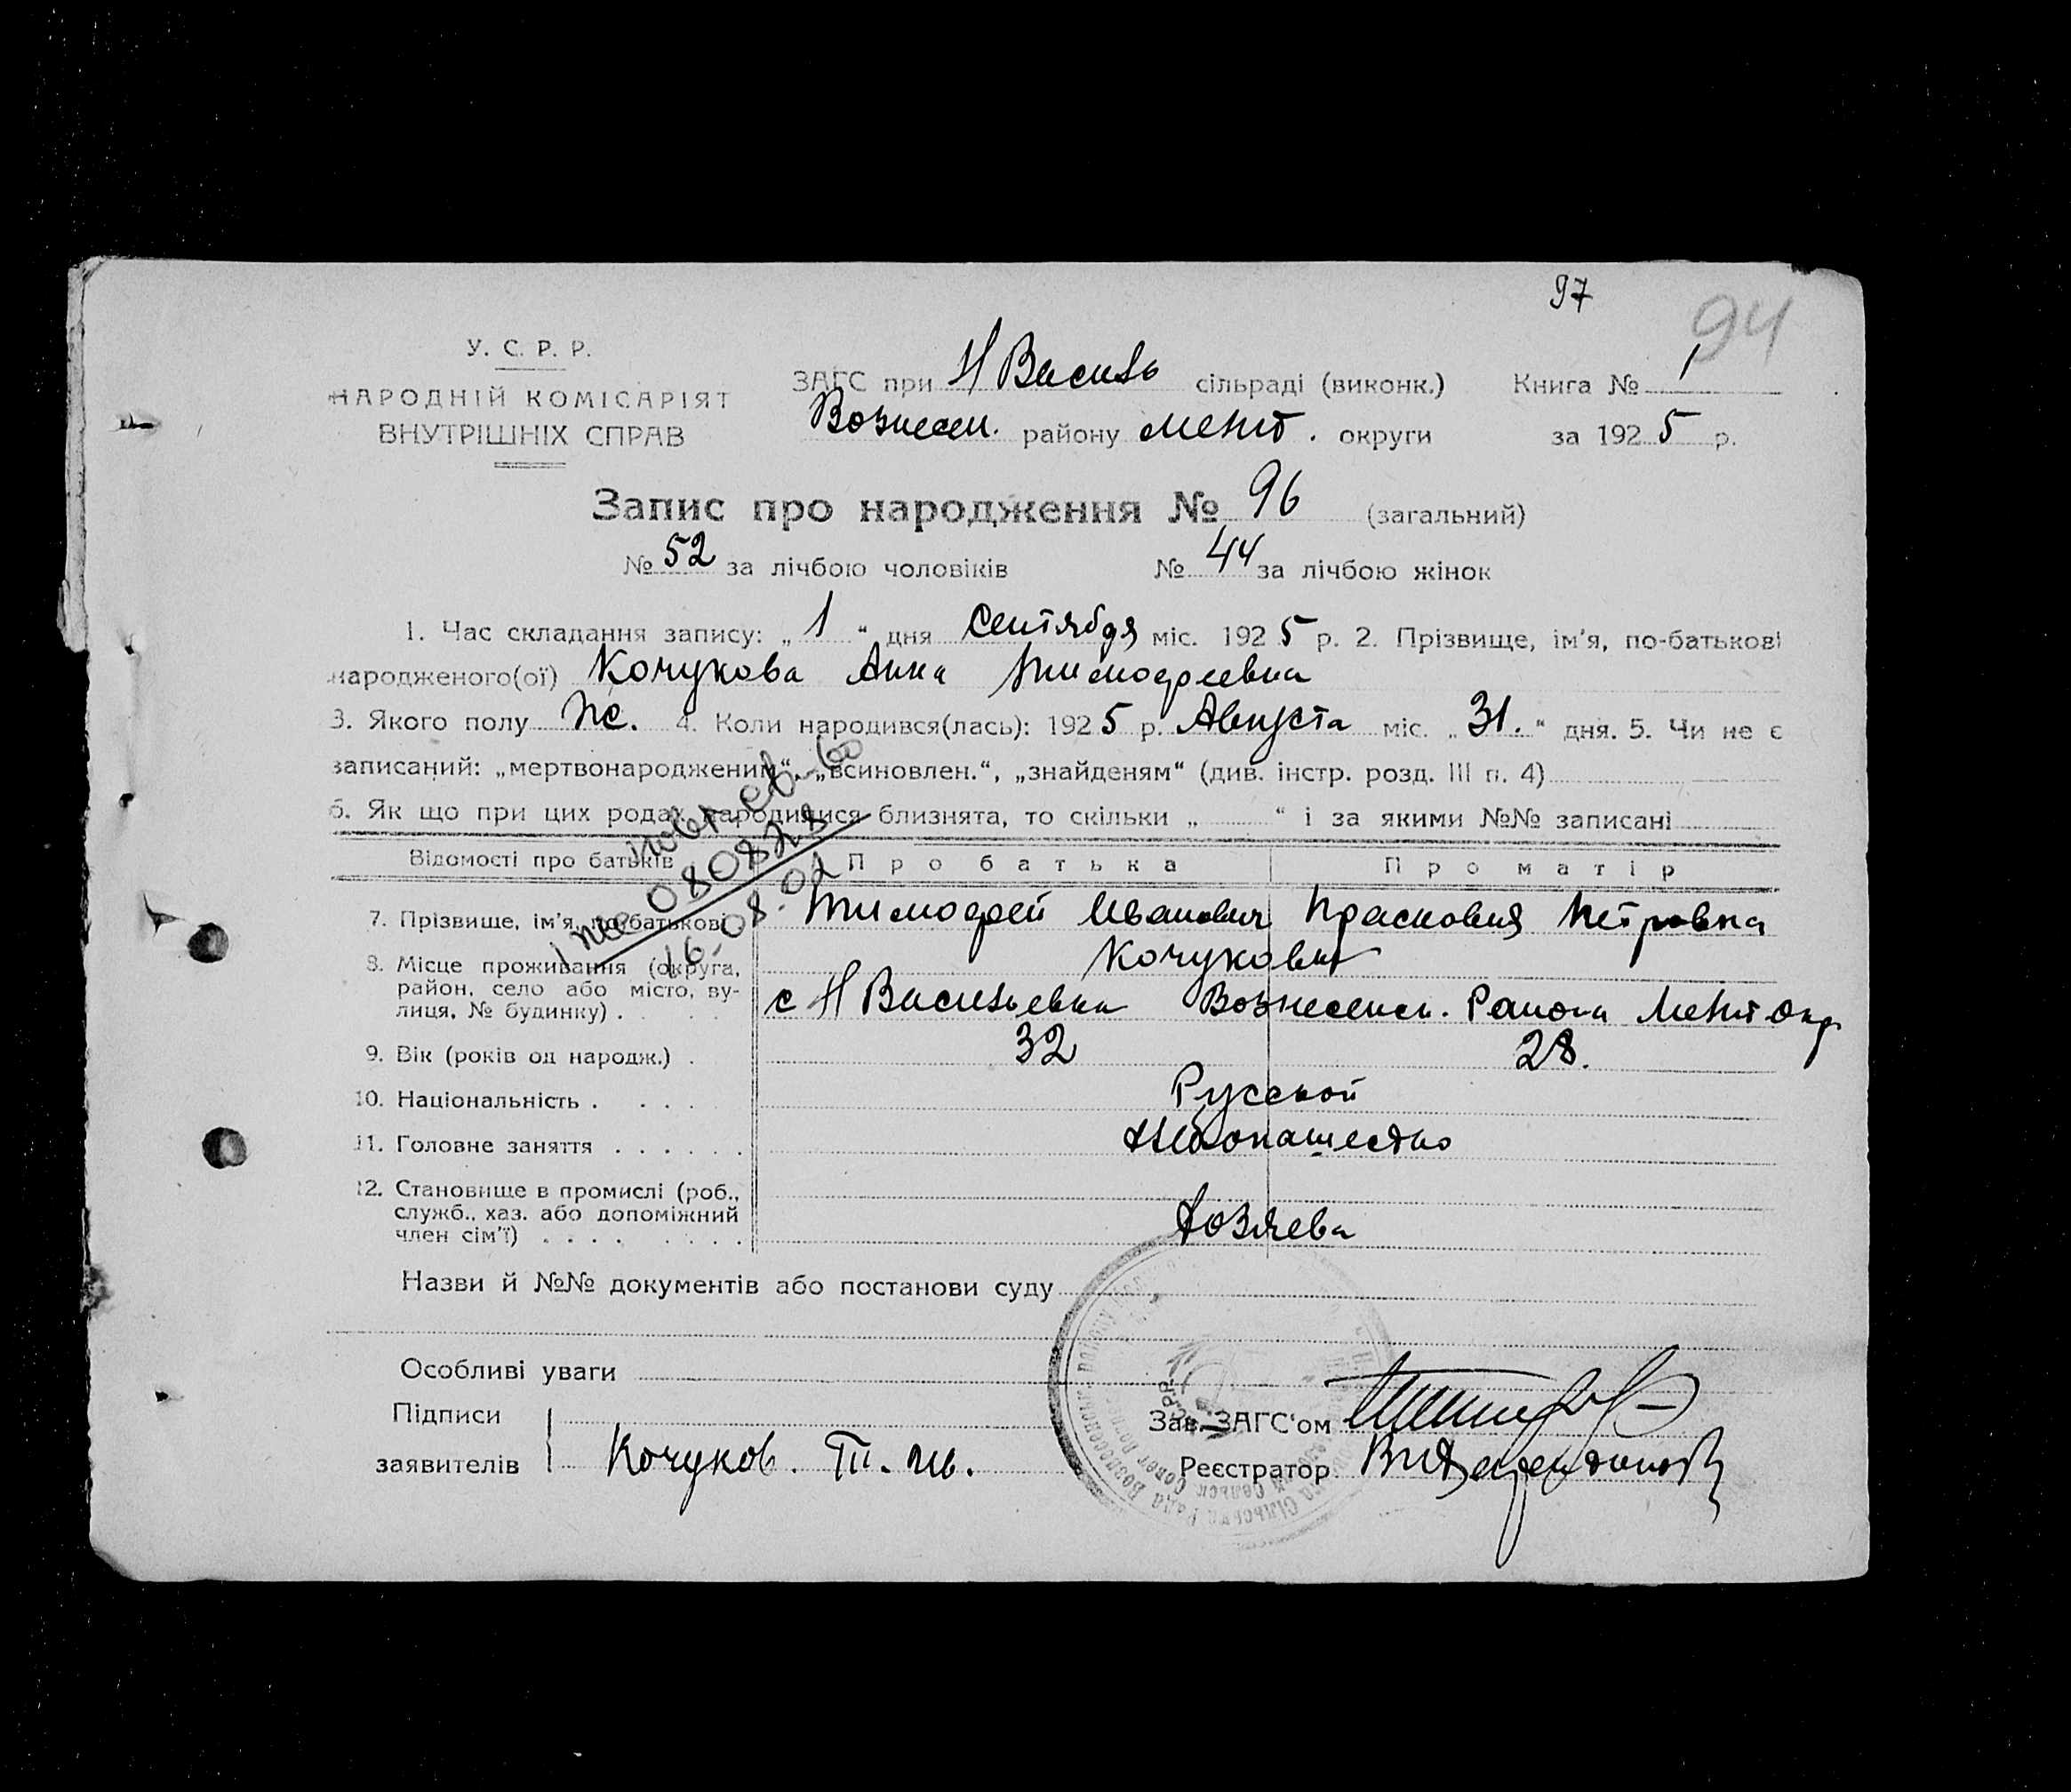 97
94
У. С. Р. Р.
НАРОДНІЙ КОМІСАРІЯТ
ВНУТРІШНІХ СПРАВ
ЗАГС при Н Василь сільраді (виконк.) Книга № 1
Вознесен. району Мелит. округи за 1925 р.
Запис про народження № 96 (загальний)
№ 52 за лічбою чоловіків № 44 за лічбою жінок
1. Час складання запису: „1“ дня Сентября міс. 1925 р. 2. Прізвище, ім'я, по-батькові
народженого(ої) Кочукова Анна Тимофеевна
3. Якого полу Же. 4. Коли народився(лась): 1925 р. Августа міс. „31.“ дня. 5. Чи не є
записаний: „мертвонародженим“, „всиновлен.“, „знайденям“ (див. інстр. розд. III п. 4)
6. Як що при цих родах народилися близнята, то скільки „ “ і за якими №№ записані
Відомості про батьків Про батька Про матір
7. Прізвище, ім'я, по-батькові Тимофей Иванович Прасковия Петровна
Кочуковы
8. Місце проживання (округа,
район, село або місто, ву-
лиця, № будинку) . с Н Васильевка Вознесенск. Района Мелит Окр
9. Вік (років од народж.) . 32 28.
10. Національність . . . . . Русской
11. Головне заняття . . . . . . Хлебопашество
12. Становище в промислі (роб.,
служб., хаз. або допоміжний
член сім'ї) . . . . . . . . Хозяева
16.08.02
Назви й №№ документів або постанови суду
Особливі уваги
Підписи
заявителів Кочуков. Т. Ив.
Зав. ЗАГС'ом
Реєстратор